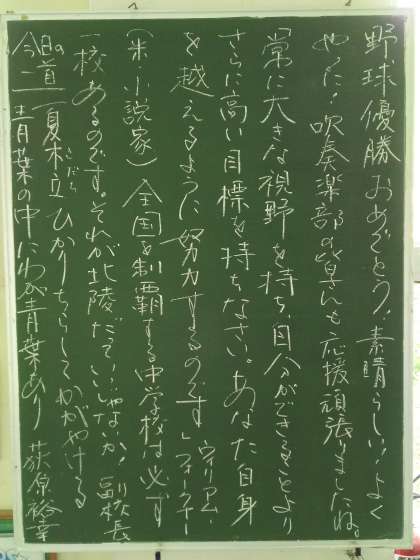 野球優勝おめでとう!素晴らしい!よく
やった!吹奏楽部の皆さんも応援頑張りましたね。
「常に大きな視野を持ち、自分ができることより
さらに高い目標を持ちなさい。あなた自身
を越えるように努力するのです」ウィリアム・フォークナー
(米・小説家) 全国を制覇する中学校は必ず
一校あるのです。それが北陵だっていいじゃないか!副校長
今日の一首 夏木立ひかりちらしてかがやける
青葉の中にわが青葉あり 荻原裕幸
こだち